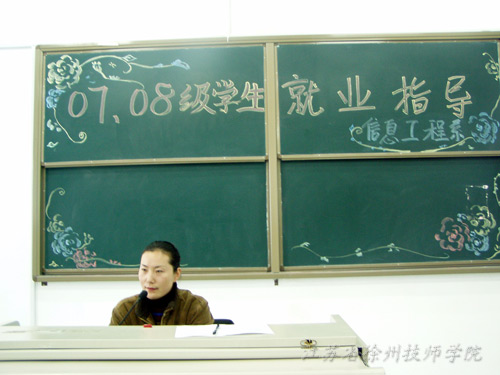 07、08级学生就业指导
信息工程系
江苏省徐州技师学院